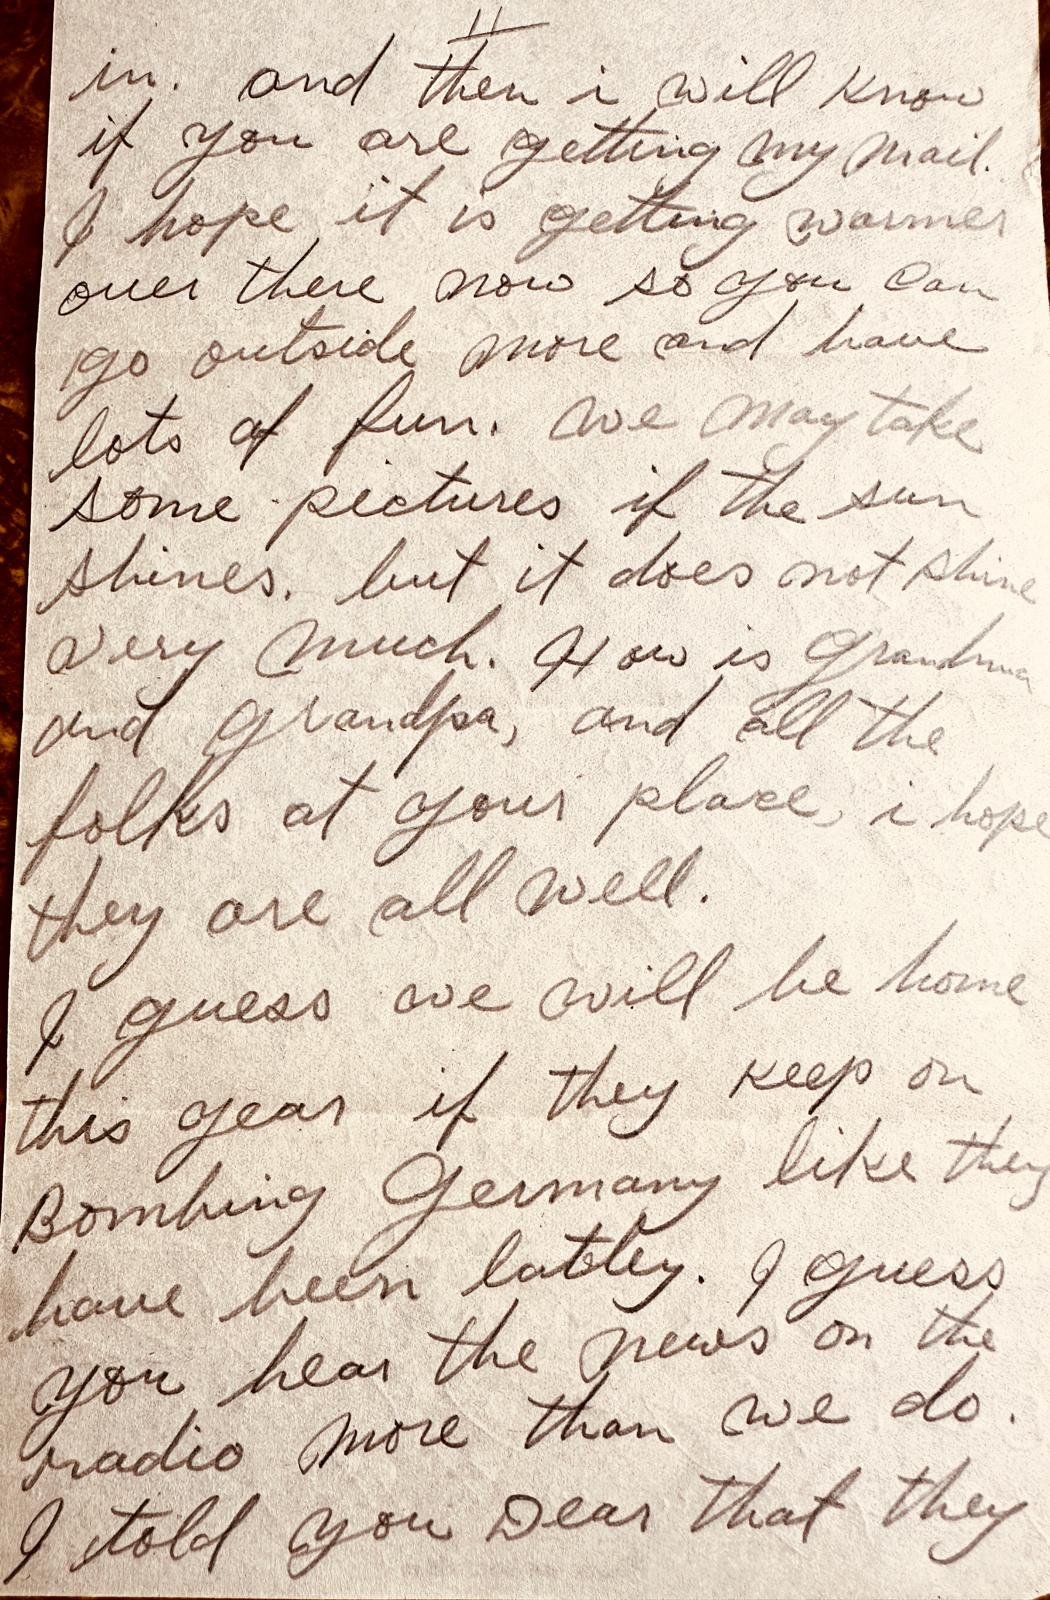 11
in. and then i will know
if you are getting my mail.
I hope it is getting warmer
over there now so you can
go outside more and have
lots of fun. we may take
some pictures if the sun
shines. but it does not shine
very much. How is grandma
and grandpa, and all the
folks at your place, i hope
they are all well.
I guess we will be home
this year if they keep on
Bombing Germany like they
have been latley. I guess
you hear the news on the
radio more than we do.
I told you Dear that they